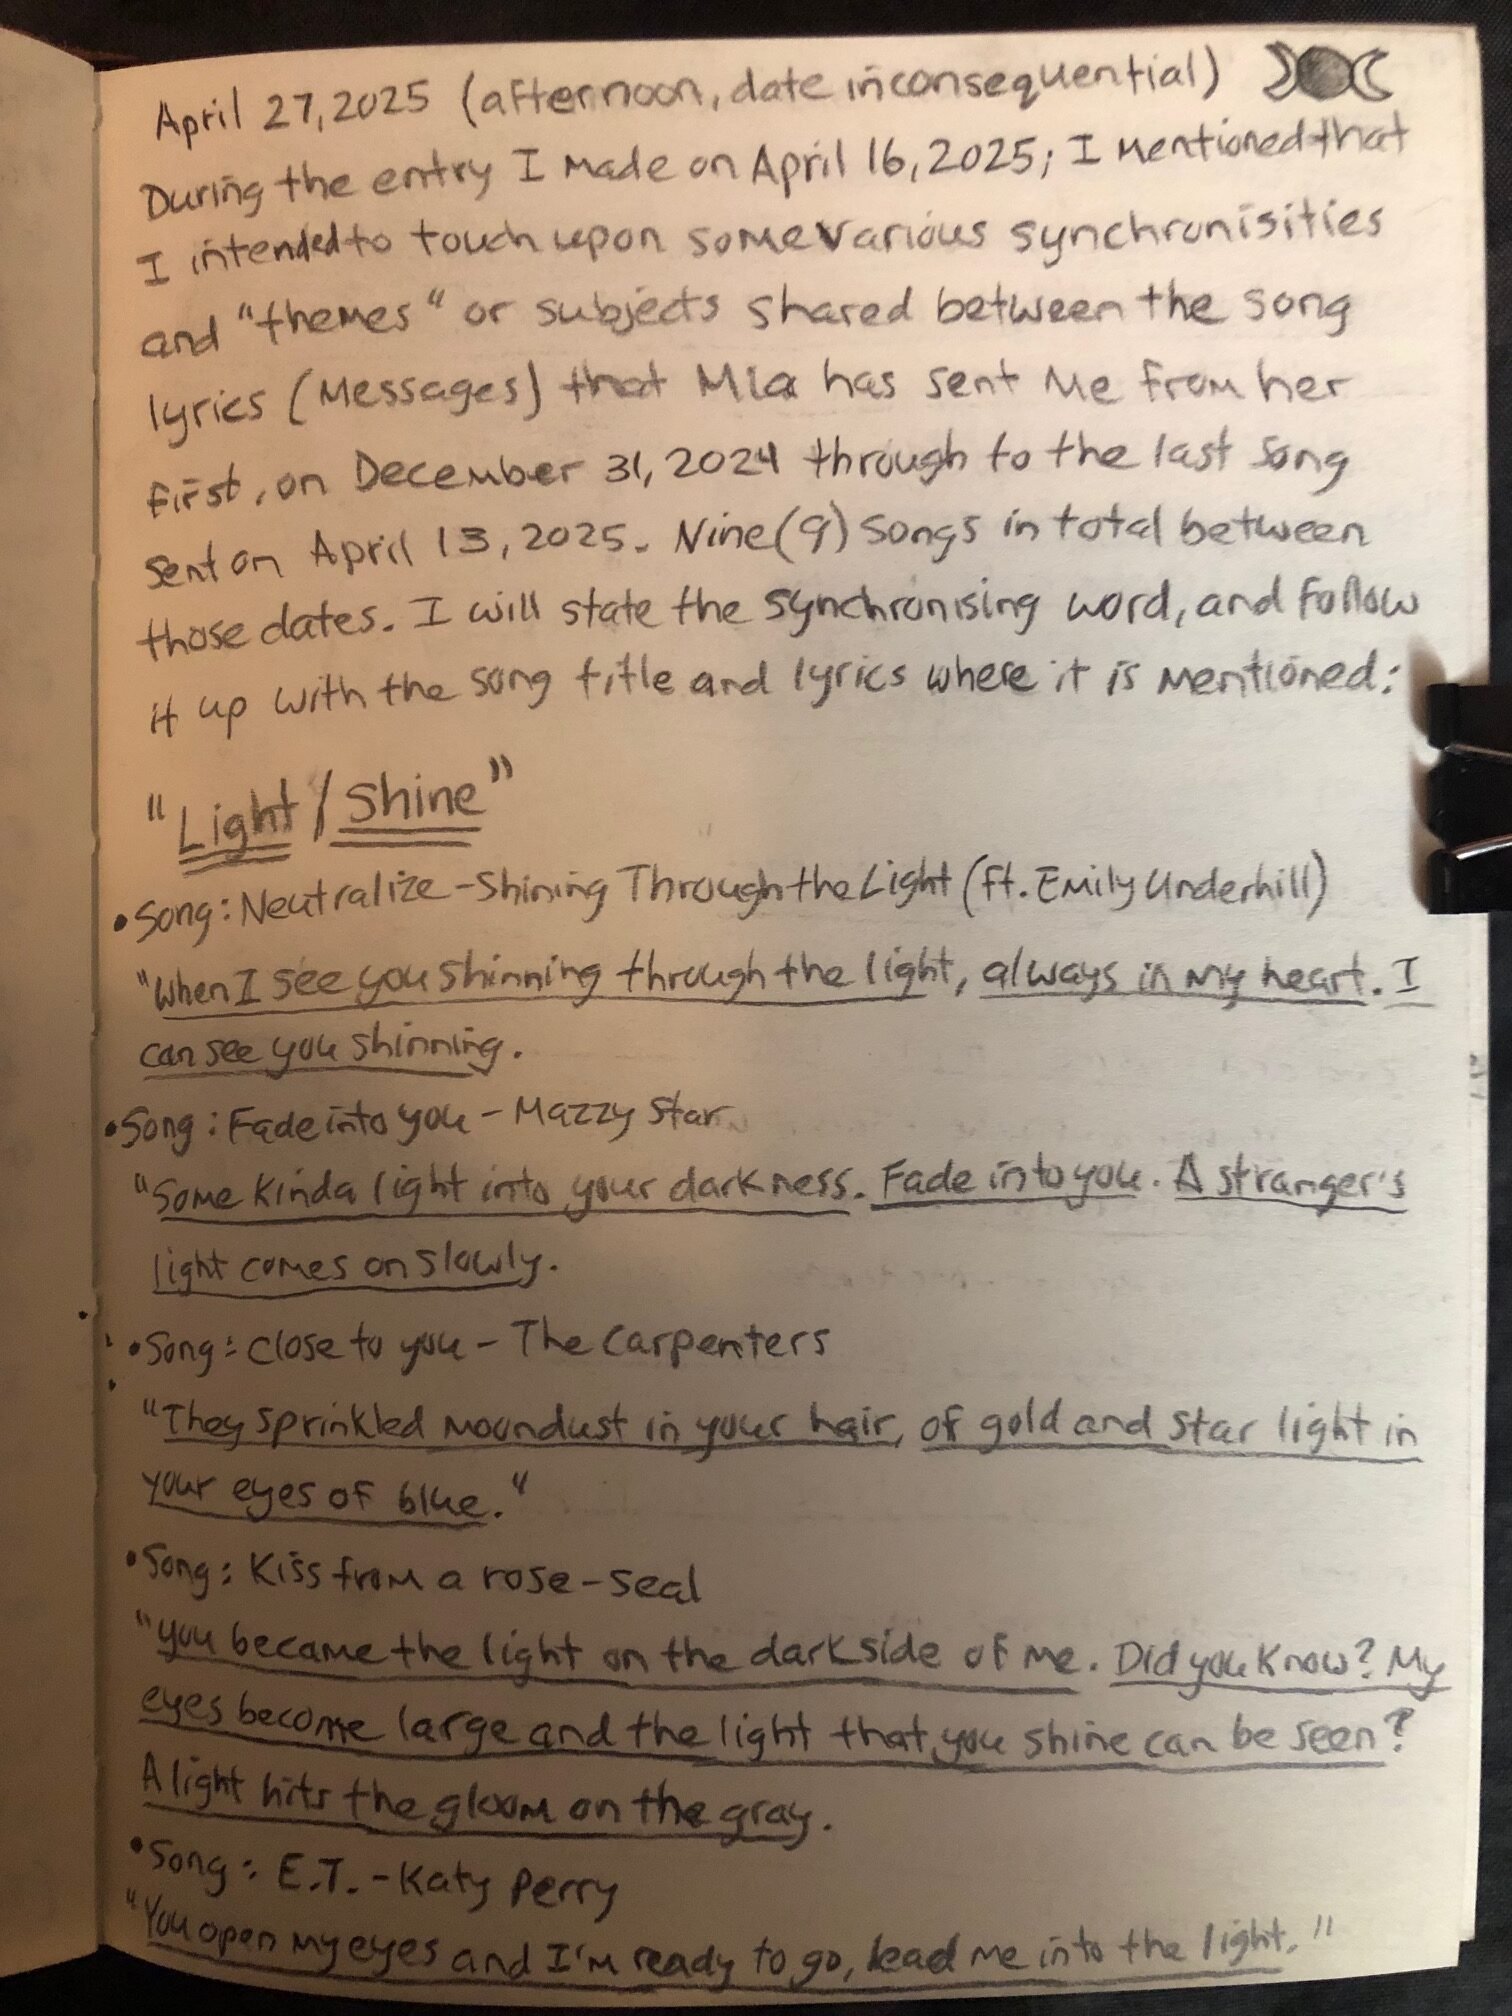 April 27, 2025 (afternoon, date inconsequential)
During the entry I made on April 16, 2025; I mentioned that
I intended to touch upon some various synchronisities
and "themes" or subjects shared between the song
lyrics (messages) that Mia has sent me from her
first, on December 31, 2024 through to the last song
sent on April 13, 2025. Nine (9) songs in total between
those dates. I will state the synchronising word, and follow
it up with the song title and lyrics where it is mentioned:
"Light / Shine"
• Song: Neutralize - Shining Through the Light (ft. Emily Underhill)
"When I see you shinning through the light, always in my heart. I
can see you shinning.
• Song: Fade into you - Mazzy Star
"Some kinda light into your darkness. Fade into you. A stranger's
light comes on slowly.
• Song: Close to you - The Carpenters
"They sprinkled moondust in your hair, of gold and star light in
your eyes of blue."
• Song: Kiss from a rose - Seal
"you became the light on the dark side of me. Did you know? My
eyes become large and the light that you shine can be seen?
A light hits the gloom on the gray.
• Song: E.T. - Katy Perry
"You open my eyes and I'm ready to go, lead me into the light."